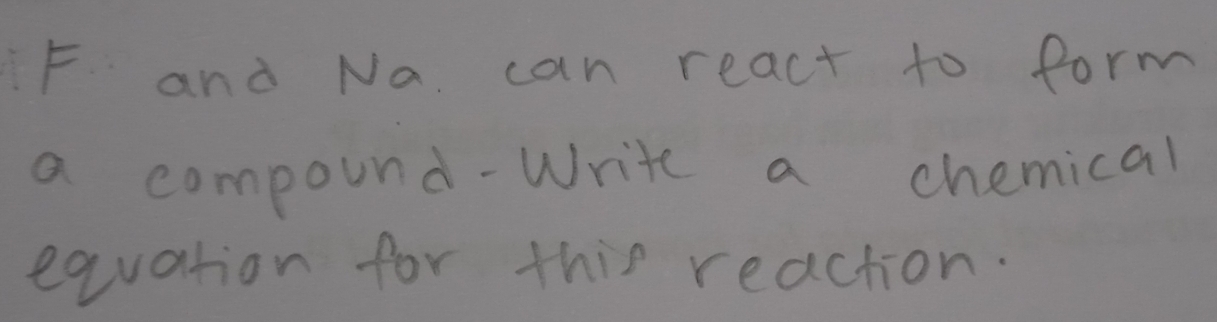 F and Na. can react to form
a compound - Write a chemical
equation for this reaction.